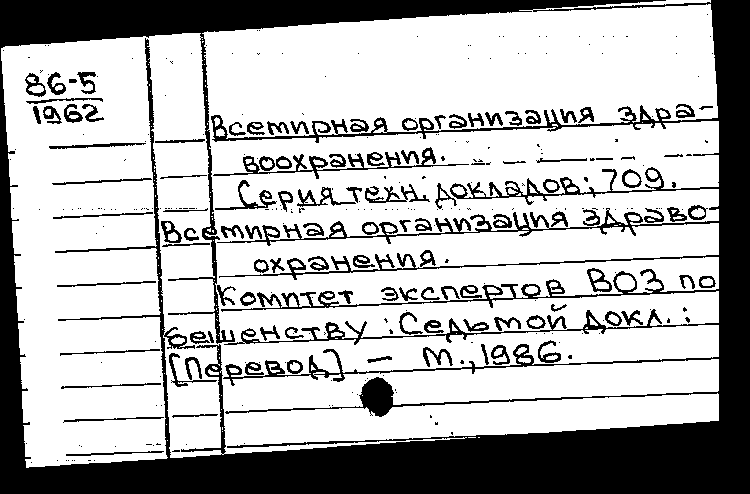 86-5
1962
Всемирная организация здра-
воохранения.
Серия техн. докладов; 709.
Всемирная организация здраво-
охранения.
Комитет экспертов ВОЗ по
бешенству : Седьмой докл. :
[Перевод]. — М., 1986.